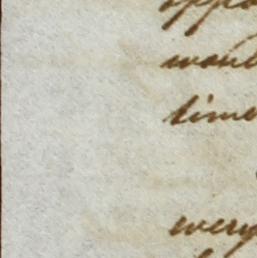 oppo
woul
time
every